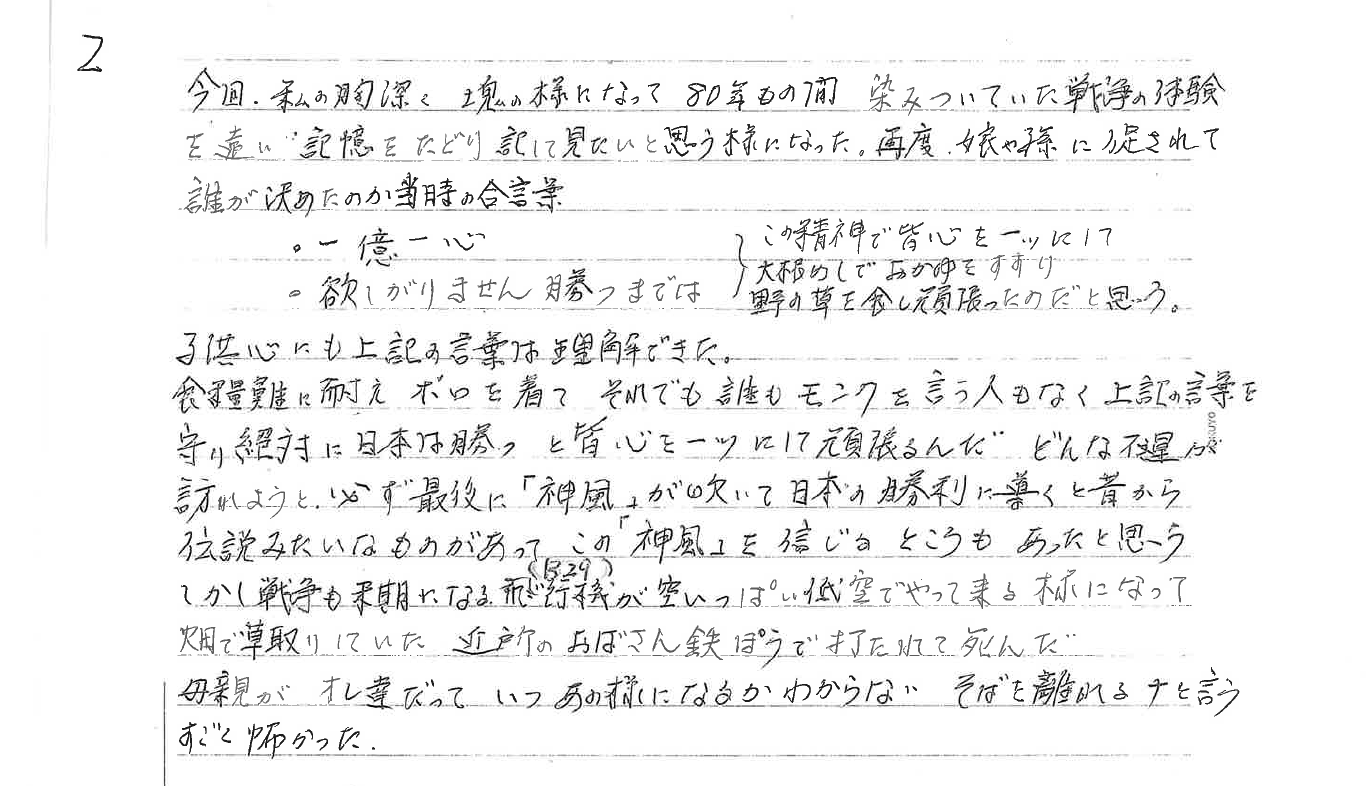 2
今回、私の胸深く 塊の様になって 80年もの間 染みついていた戦争の体験
を遠い記憶をたどり記して見たいと思う様になった。再度、娘や孫に促されて
誰が決めたのか当時の合言葉
。一億一心
。欲しがりません勝つまでは
この精神で皆心を一ッにして
大根めしでおかゆをすすり
野の草を食し頑張ったのだと思う。
子供心にも上記の言葉は理解できた。
食糧難に耐え ボロを着て それでも誰もモンクを言う人もなく上記の言葉を
守り絶対に日本は勝つ と皆心を一ツにして頑張るんだ どんな が
訪れようと、必ず最後に「神風」が吹いて日本の勝利に導くと昔から
伝説みたいなものがあって この「神風」を信じるところも あったと思う
しかし戦争も末期になる飛行機(B29)が空いっぱい低空でやって来る様になって
畑で草取りしていた 近所のおばさん鉄ぽうで打たれて死んだ
母親が オレ達だって いつ あの様になるかわからない そばを離れるナと言う
すごく怖かった.